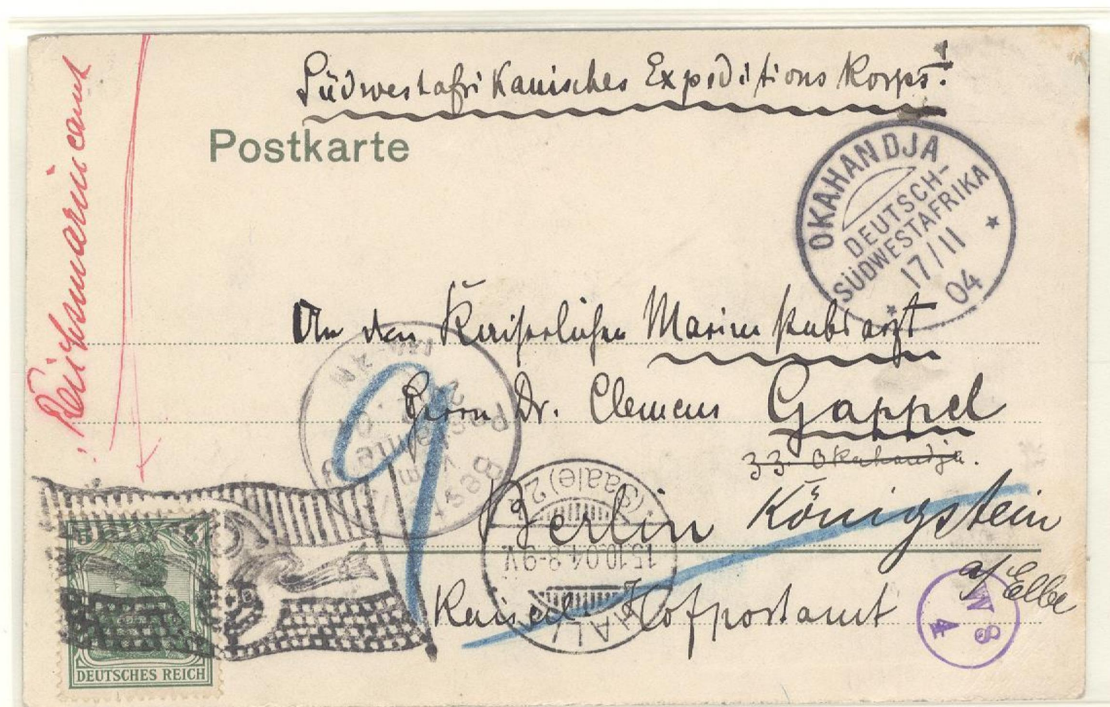 Reichsmarineamt
Südwestafrikanisches Expeditions Korps!
Postkarte
OKAHANDJA
DEUTSCH-
SÜDWESTAFRIKA
17/11
04
An den Kaiserlichen Marinestabsarzt
Herrn Dr. Clemens Gappel
zz. Okahandja.
Berlin Königstein
a/Elbe
Kaiserl. Hofpostamt
9
HALLE
(Saale) 2
15.10.04.8-9V.
W 8
4
DEUTSCHES REICH